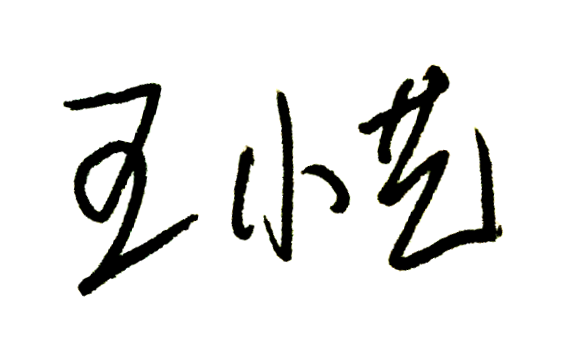 王小艺